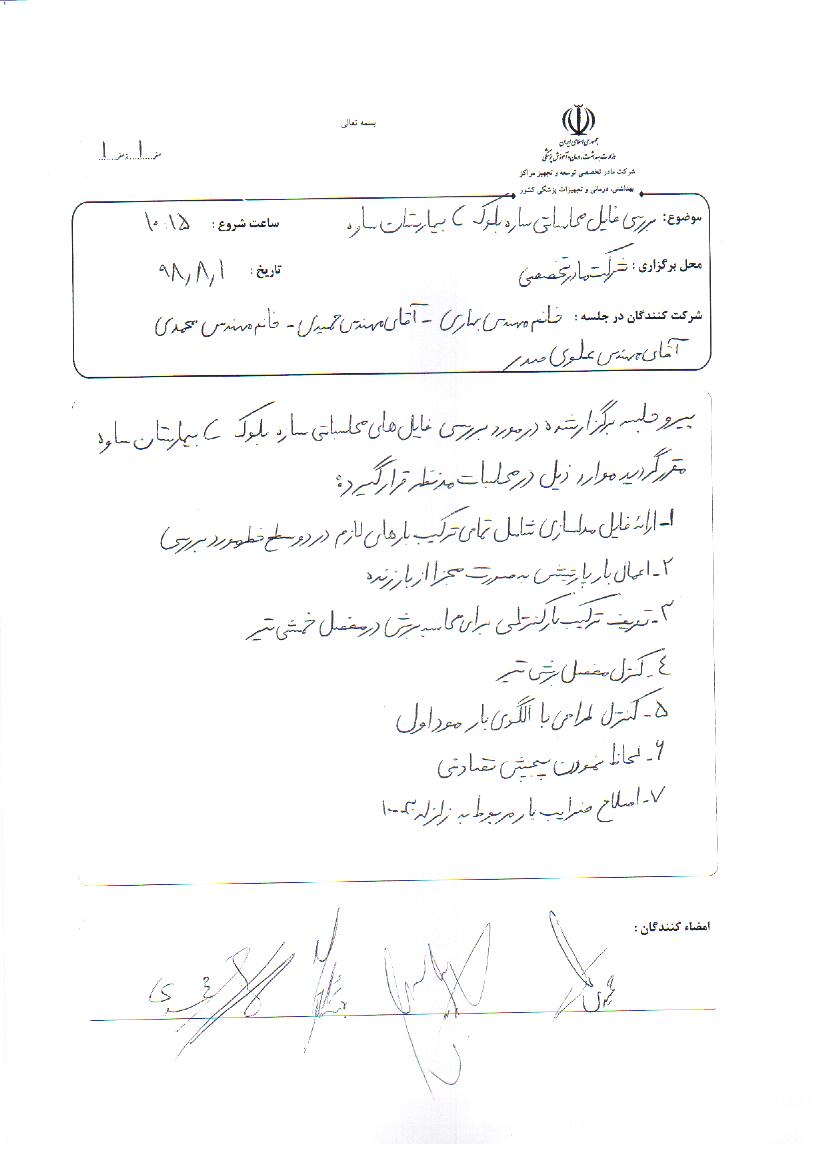 بسمه تعالی
جمهوری اسلامی ایران
وزارت بهداشت، درمان و آموزش پزشکی
شرکت مادر تخصصی توسعه و تجهیز مراکز
بهداشتی، درمانی و تجهیزات پزشکی کشور
صفحه 1 از 1
موضوع: بررسی فایل محاسباتی سازه بلوک C بیمارستان ساوه
ساعت شروع : ۱۰:۱۵
محل برگزاری : شرکت مادر تخصصی
تاریخ : ۹۸,۸,۱
شرکت کنندگان در جلسه : خانم مهندس بهاری - آقای مهندس حمیدی - خانم مهندس محمدی
آقای مهندس علوی صدر
پیرو جلسه برگزار شده در مورد بررسی فایل های محاسباتی سازه بلوک C بیمارستان ساوه
مقرر گردید موارد ذیل در محاسبات مدنظر قرار گیرد:
۱- ارائه فایل مدلسازی شامل تمامی ترکیب بارهای لازم در دو سطح خطر مورد بررسی
۲- اعمال بار پارتیشن به صورت مجزا از بار زنده
۳- تعریف ترکیب بار کنترلی برای محاسبه برش در مفصل خمشی تیر
٤- کنترل مفصل برشی تیر
۵- کنترل طراحی با الگوی بار مود اول
۶- لحاظ نمودن پیچش تصادفی
۷- اصلاح ضرایب بار مربوط به زلزله ۳۰-۱۰۰
امضاء کنندگان :